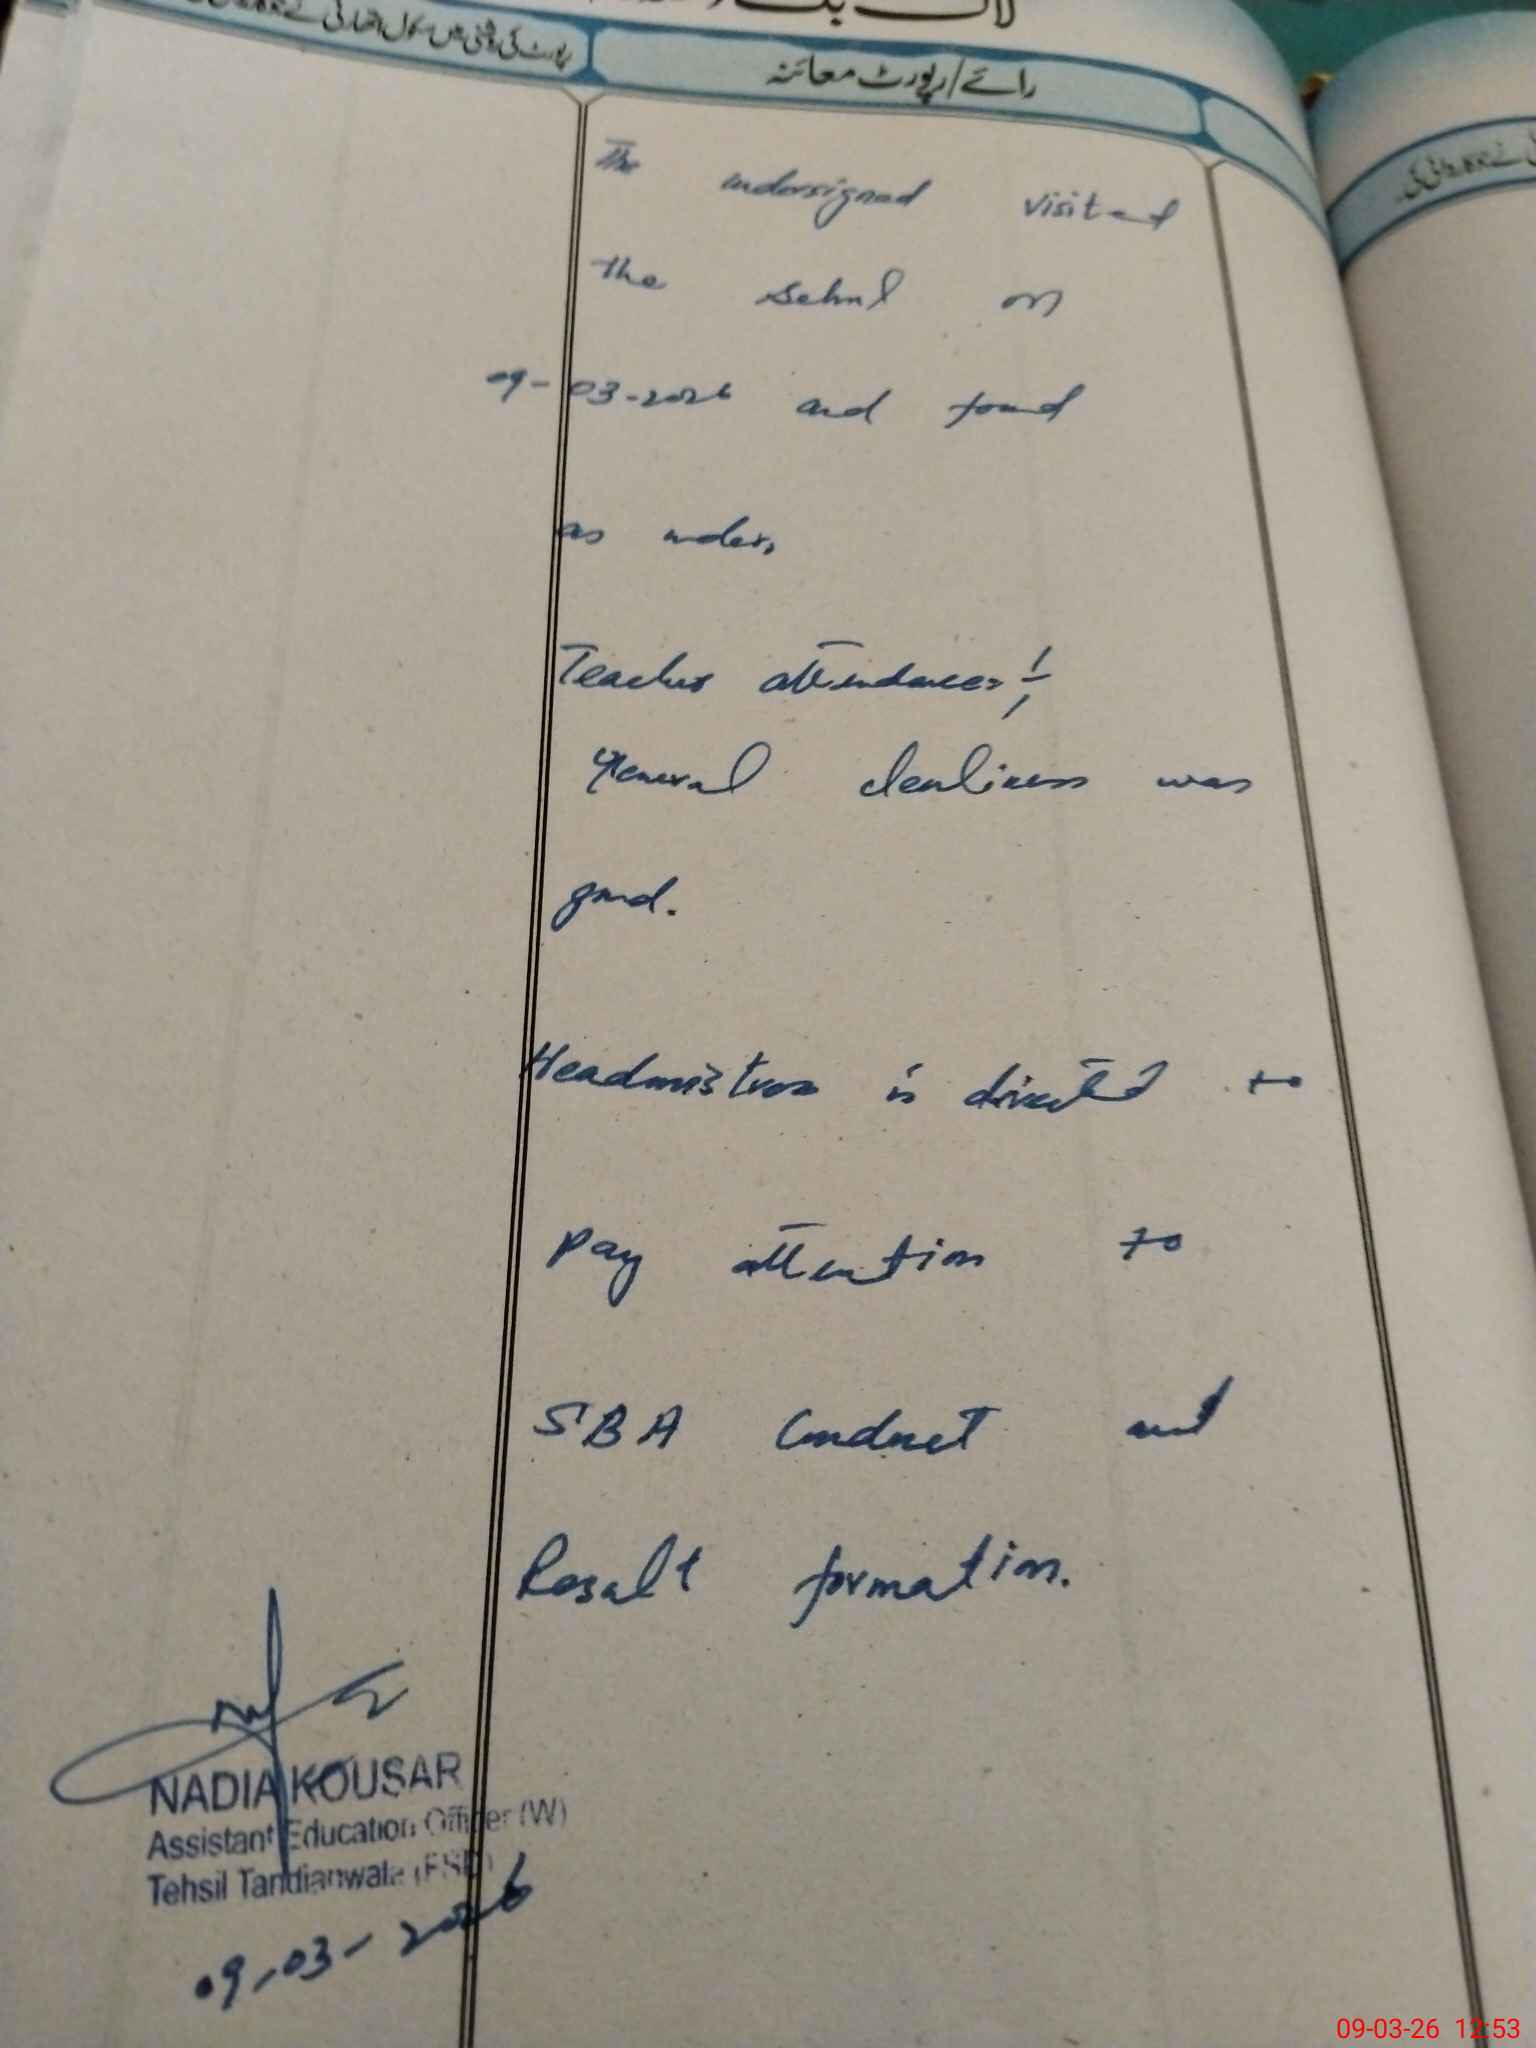 لاگ بک
رائے/رپورٹ معائنہ
رپورٹ کی روشنی میں سکول اتھارٹی نے جو کاروائی کی
The undersigned visited
the school on
09-03-2026 and found
as under,
Teacher attendance= 1/1
General cleanliness was
good.
Headmistress is directed to
pay attention to
SBA Conduct and
Result formation.
NADIA KOUSAR
Assistant Education Officer (W)
Tehsil Tandlianwala (FSD)
09-03-2026
09-03-26 12:53